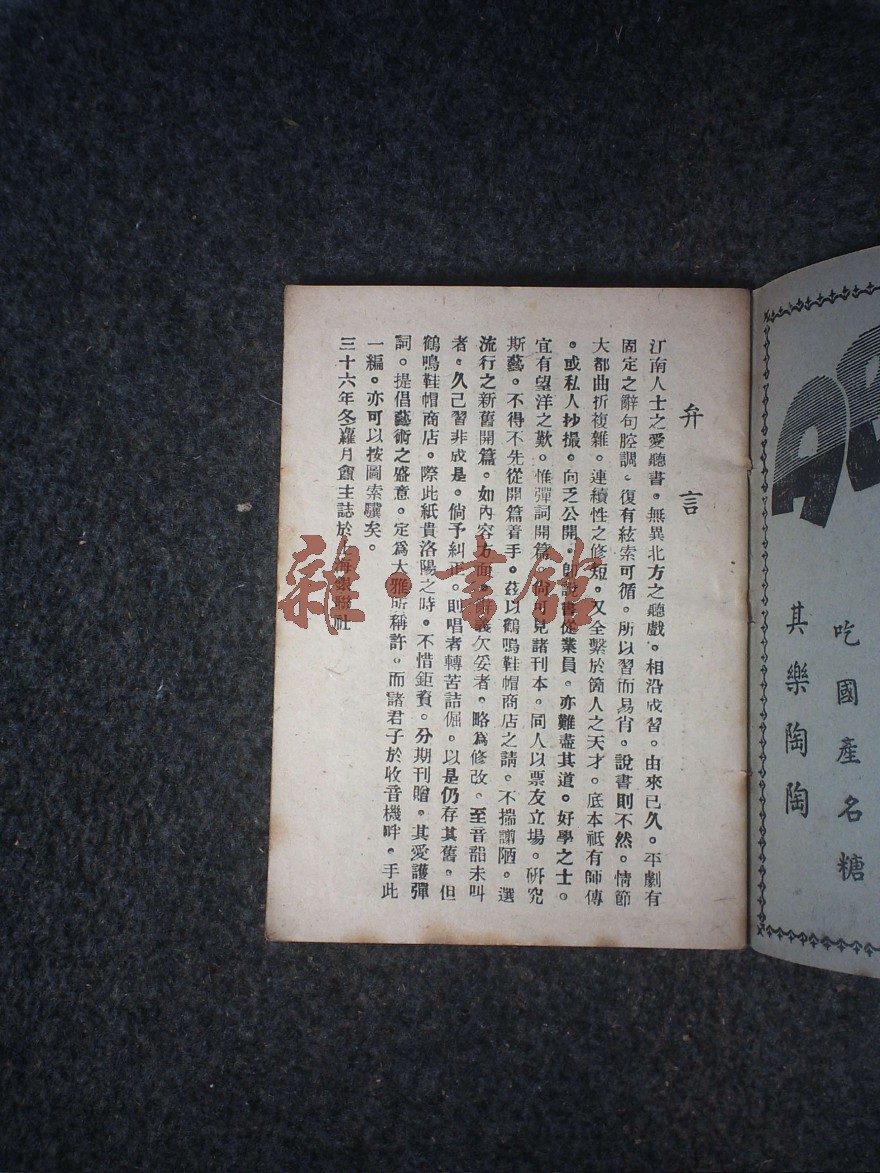 弁言
江南人士之愛聽書。無異北方之聽戲。相沿成習。由來已久。平劇有
固定之辭句腔調。復有絃索可循。所以習而易肖。說書則不然。情節
大都曲折複雜。連續性之修短。又全繫於箇人之天才。底本祇有師傳
。或私人抄撮。向乏公開。卽說書從業員。亦難盡其道。好學之士。
宜有望洋之歎。惟彈詞開篇。尚可見諸刊本。同人以票友立場。研究
斯藝。不得不先從開篇着手。茲以鶴鳴鞋帽商店之請。不揣譾陋。選
流行之新舊開篇。如內容方面。義欠妥者。略為修改。至音韻未叫
者。久已習非成是。倘予糾正。則唱者轉苦詰倔。以是仍存其舊。但
鶴鳴鞋帽商店。際此紙貴洛陽之時。不惜鉅資。分期刊贈。其愛護彈
詞。提倡藝術之盛意。定為大雅所稱許。而諸君子於收音機畔。手此
一編。亦可以按圖索驥矣。
三十六年冬蘿月盦主誌於上海銀聯社
雜·書館
吃國產名糖
其樂陶陶